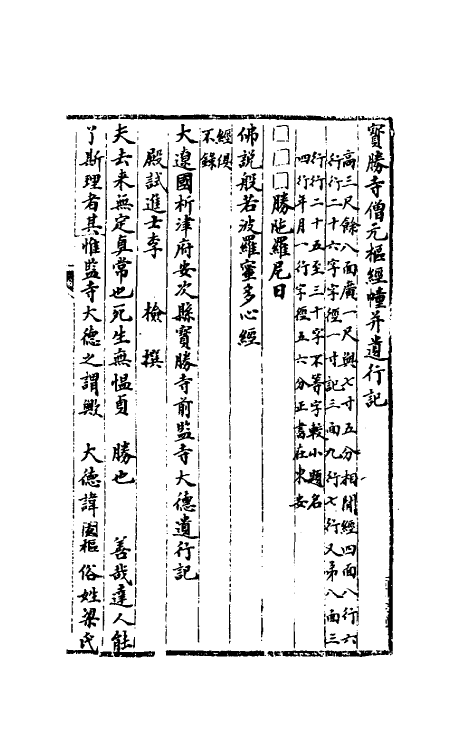 寳勝寺僧元樞經幢并遺行記
高三尺餘八面廣一尺與七寸五分相間經四面八行六
行行二十六字字徑一寸記三面九行七行又弟八面三
行行二十五至三十字不等字較小題名
四行年月一行字徑五六分正書在東安
□□□勝陁羅尼曰
佛説般若波羅蜜多心經
經俱
不錄
大遼國析津府安次縣寳勝寺前監寺大德遺行記
殿試進士李　檢　撰
夫去來無定真常也死生無愠貞　勝也　善哉達人能
了斯理者其惟監寺大德之謂歟　大德諱　樞俗姓梁氏